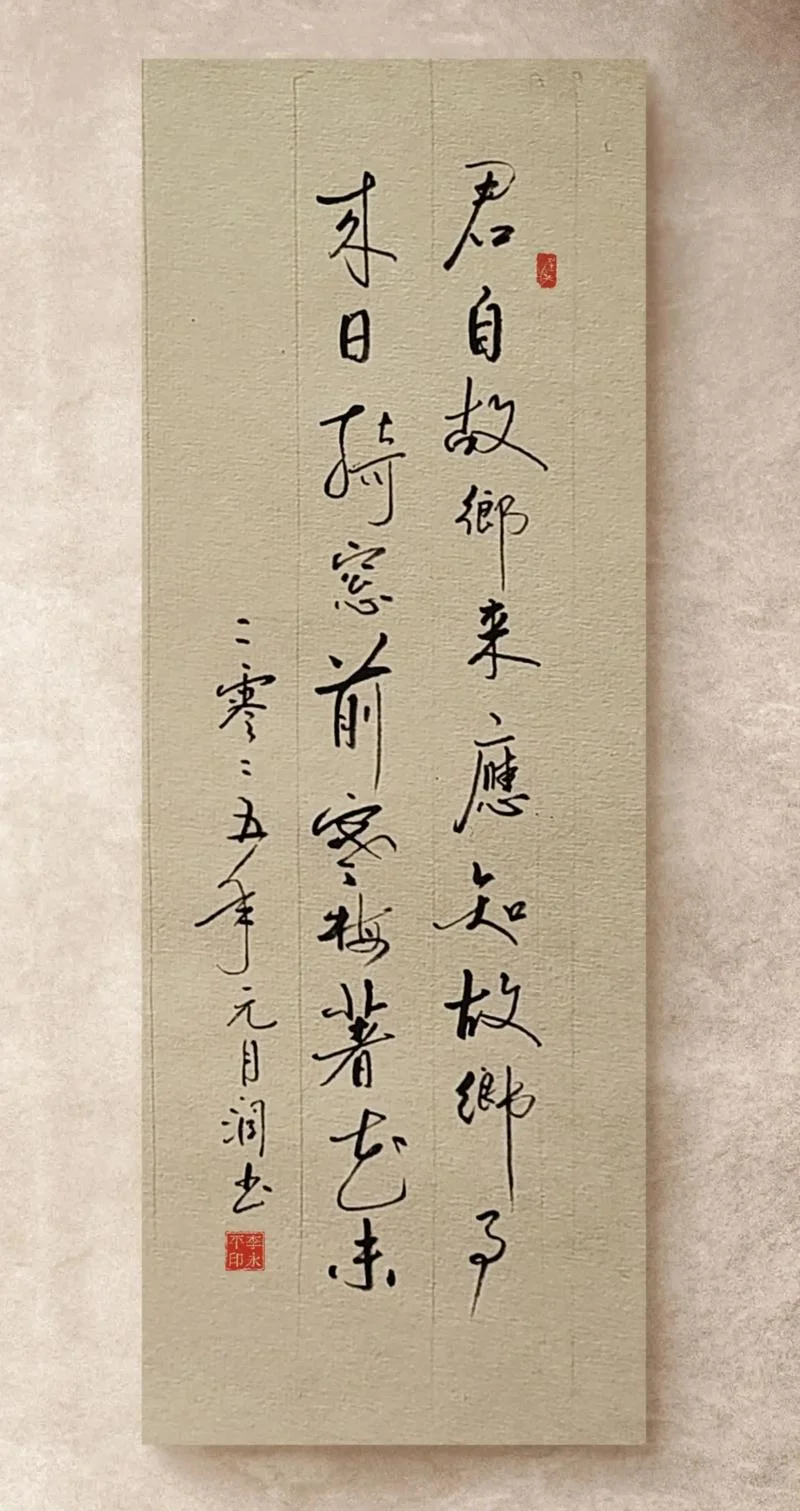 君自故鄉来應知故鄉事
来日綺窓前寒梅著花未
二零二五年元月潤书
李永
平印